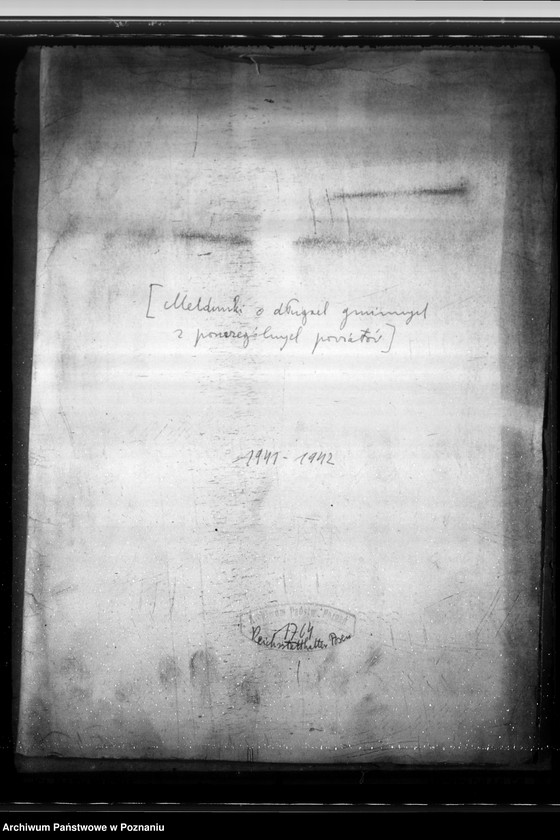 [Meldunki o długach gminnych
z poszczególnych powiatów]
1941 - 1942
1764
Reichsstatthalter Posen
1
Archiwum Państwowe w Poznaniu